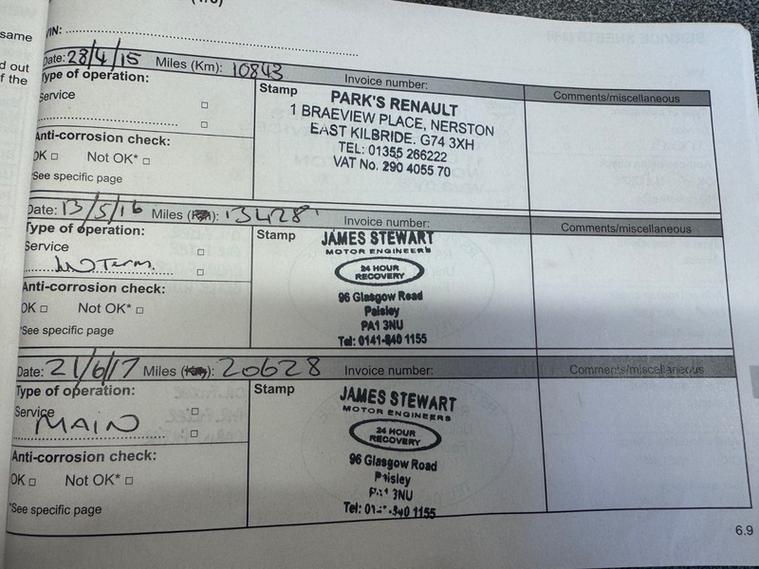 same
d out
f the
VIN:
Date: 28/4/15 Miles (Km): 10843 Invoice number:
Type of operation:
Service
Stamp
PARK'S RENAULT
1 BRAEVIEW PLACE, NERSTON
EAST KILBRIDE. G74 3XH
TEL: 01355 266222
VAT No. 290 4055 70
Comments/miscellaneous
Anti-corrosion check:
OK □ Not OK* □
*See specific page
Date: 13/5/16 Miles (Km): 13428 Invoice number:
Type of operation:
Service
Stamp
JAMES STEWART
MOTOR ENGINEERS
24 HOUR
RECOVERY
96 Glasgow Road
Paisley
PA1 3NU
Tel: 0141-840 1155
Comments/miscellaneous
Anti-corrosion check:
OK □ Not OK* □
*See specific page
Date: 21/6/17 Miles (Km): 20628 Invoice number:
Type of operation:
Service
MAIN
Stamp
JAMES STEWART
MOTOR ENGINEERS
24 HOUR
RECOVERY
96 Glasgow Road
Paisley
PA1 3NU
Tel: 0141-840 1155
Comments/miscellaneous
Anti-corrosion check:
OK □ Not OK* □
*See specific page
6.9